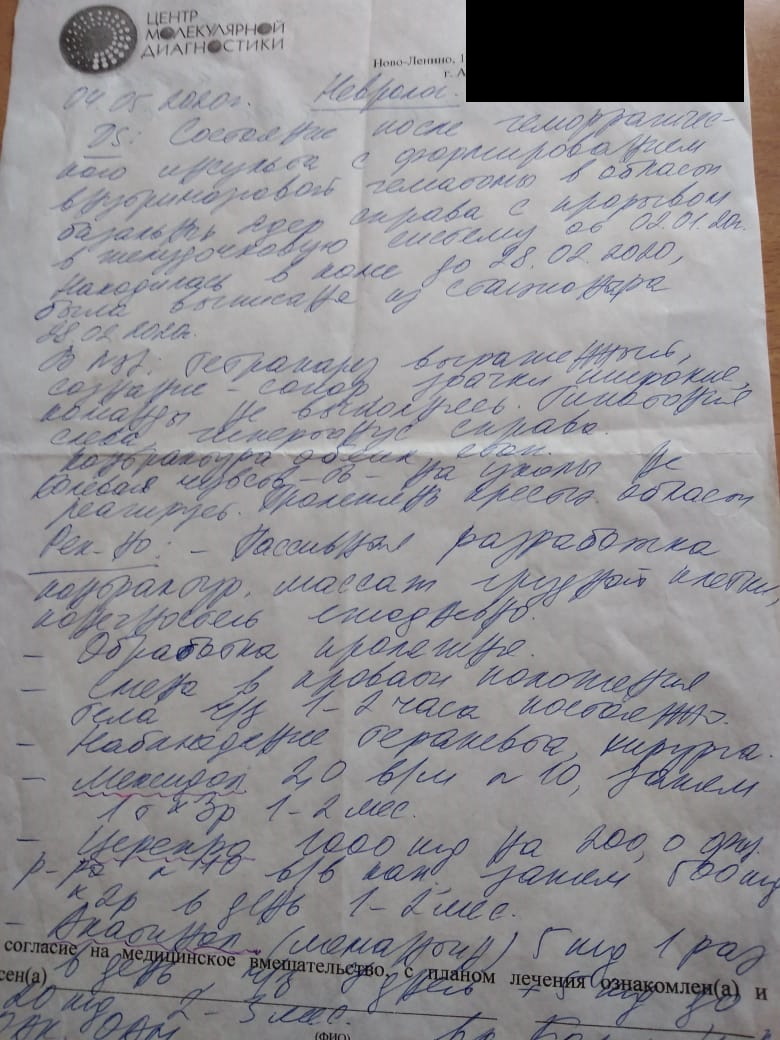 ЦЕНТР
МОЛЕКУЛЯРНОЙ
ДИАГНОСТИКИ
Ново-Ленино, 1
г. А
04.05.2020г. Невролог.
DS: Состояние после геморрагичес-
кого инсульта с формированием
внутримозговой гематомы в области
базальных ядер справа с прорывом
в желудочковую систему от 02.01.20г.
Находилась в коме до 28.02.2020,
была выписана из стационара
28.02.2020г.
Тетрапарез выраженный,
сознание - сопор, зрачки широкие,
команды не выполняет. Гипотония
слева, гипертонус справа.
Контрактура стоп.
Болевая чувств-ть - на уколы не
реагирует. Пролежень крестц. области
Рек-но: - Пассивная разработка
контрактур, массаж грудной клетки,
конечностей ежедневно.
- Обработка пролежня.
- Смена в кровати положения
тела ч/з 1-2 часа постоянно.
- Наблюдение терапевта, хирурга.
- Мексидол 2,0 в/м n 10, затем
1т x 3р 1-2 мес.
- Церепро 1000 мг на 200,0 физ.
р-ра n 10 в/в кап. затем 500 мг
x 2р в день 1-2 мес.
- Акатинол (мемантин) 5 мг 1 раз
согласие на медицинское вмешательство, с планом лечения ознакомлен(а) и
в день ч/з неделю +5 мг до
сен(а)
20 мг 2-3 мес.
ОАК, ОАМ
(ФИО)